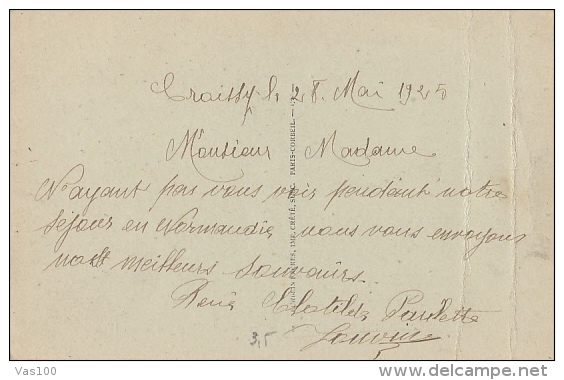 Croissy le 28 Mai 1925
Monsieur Madame
N'ayant pas vous voir pendant notre
séjour en Normandie, nous vous envoyons
nos meilleurs souvenirs.
René Clotilde Paulette
3,5
IMP. CRÉTÉ, SUCC. PARIS-CORBEIL.
Vas100
delcampe.net